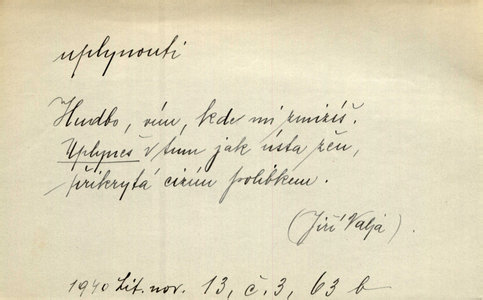 uplynouti
Hudbo, vím, kde mi zmizíš.
Uplyneš v tmu jak ústa žen,
přikrytá cizím polibkem.
(Jiří Valja).
1940 Lit. nov. 13, č. 3, 63 b